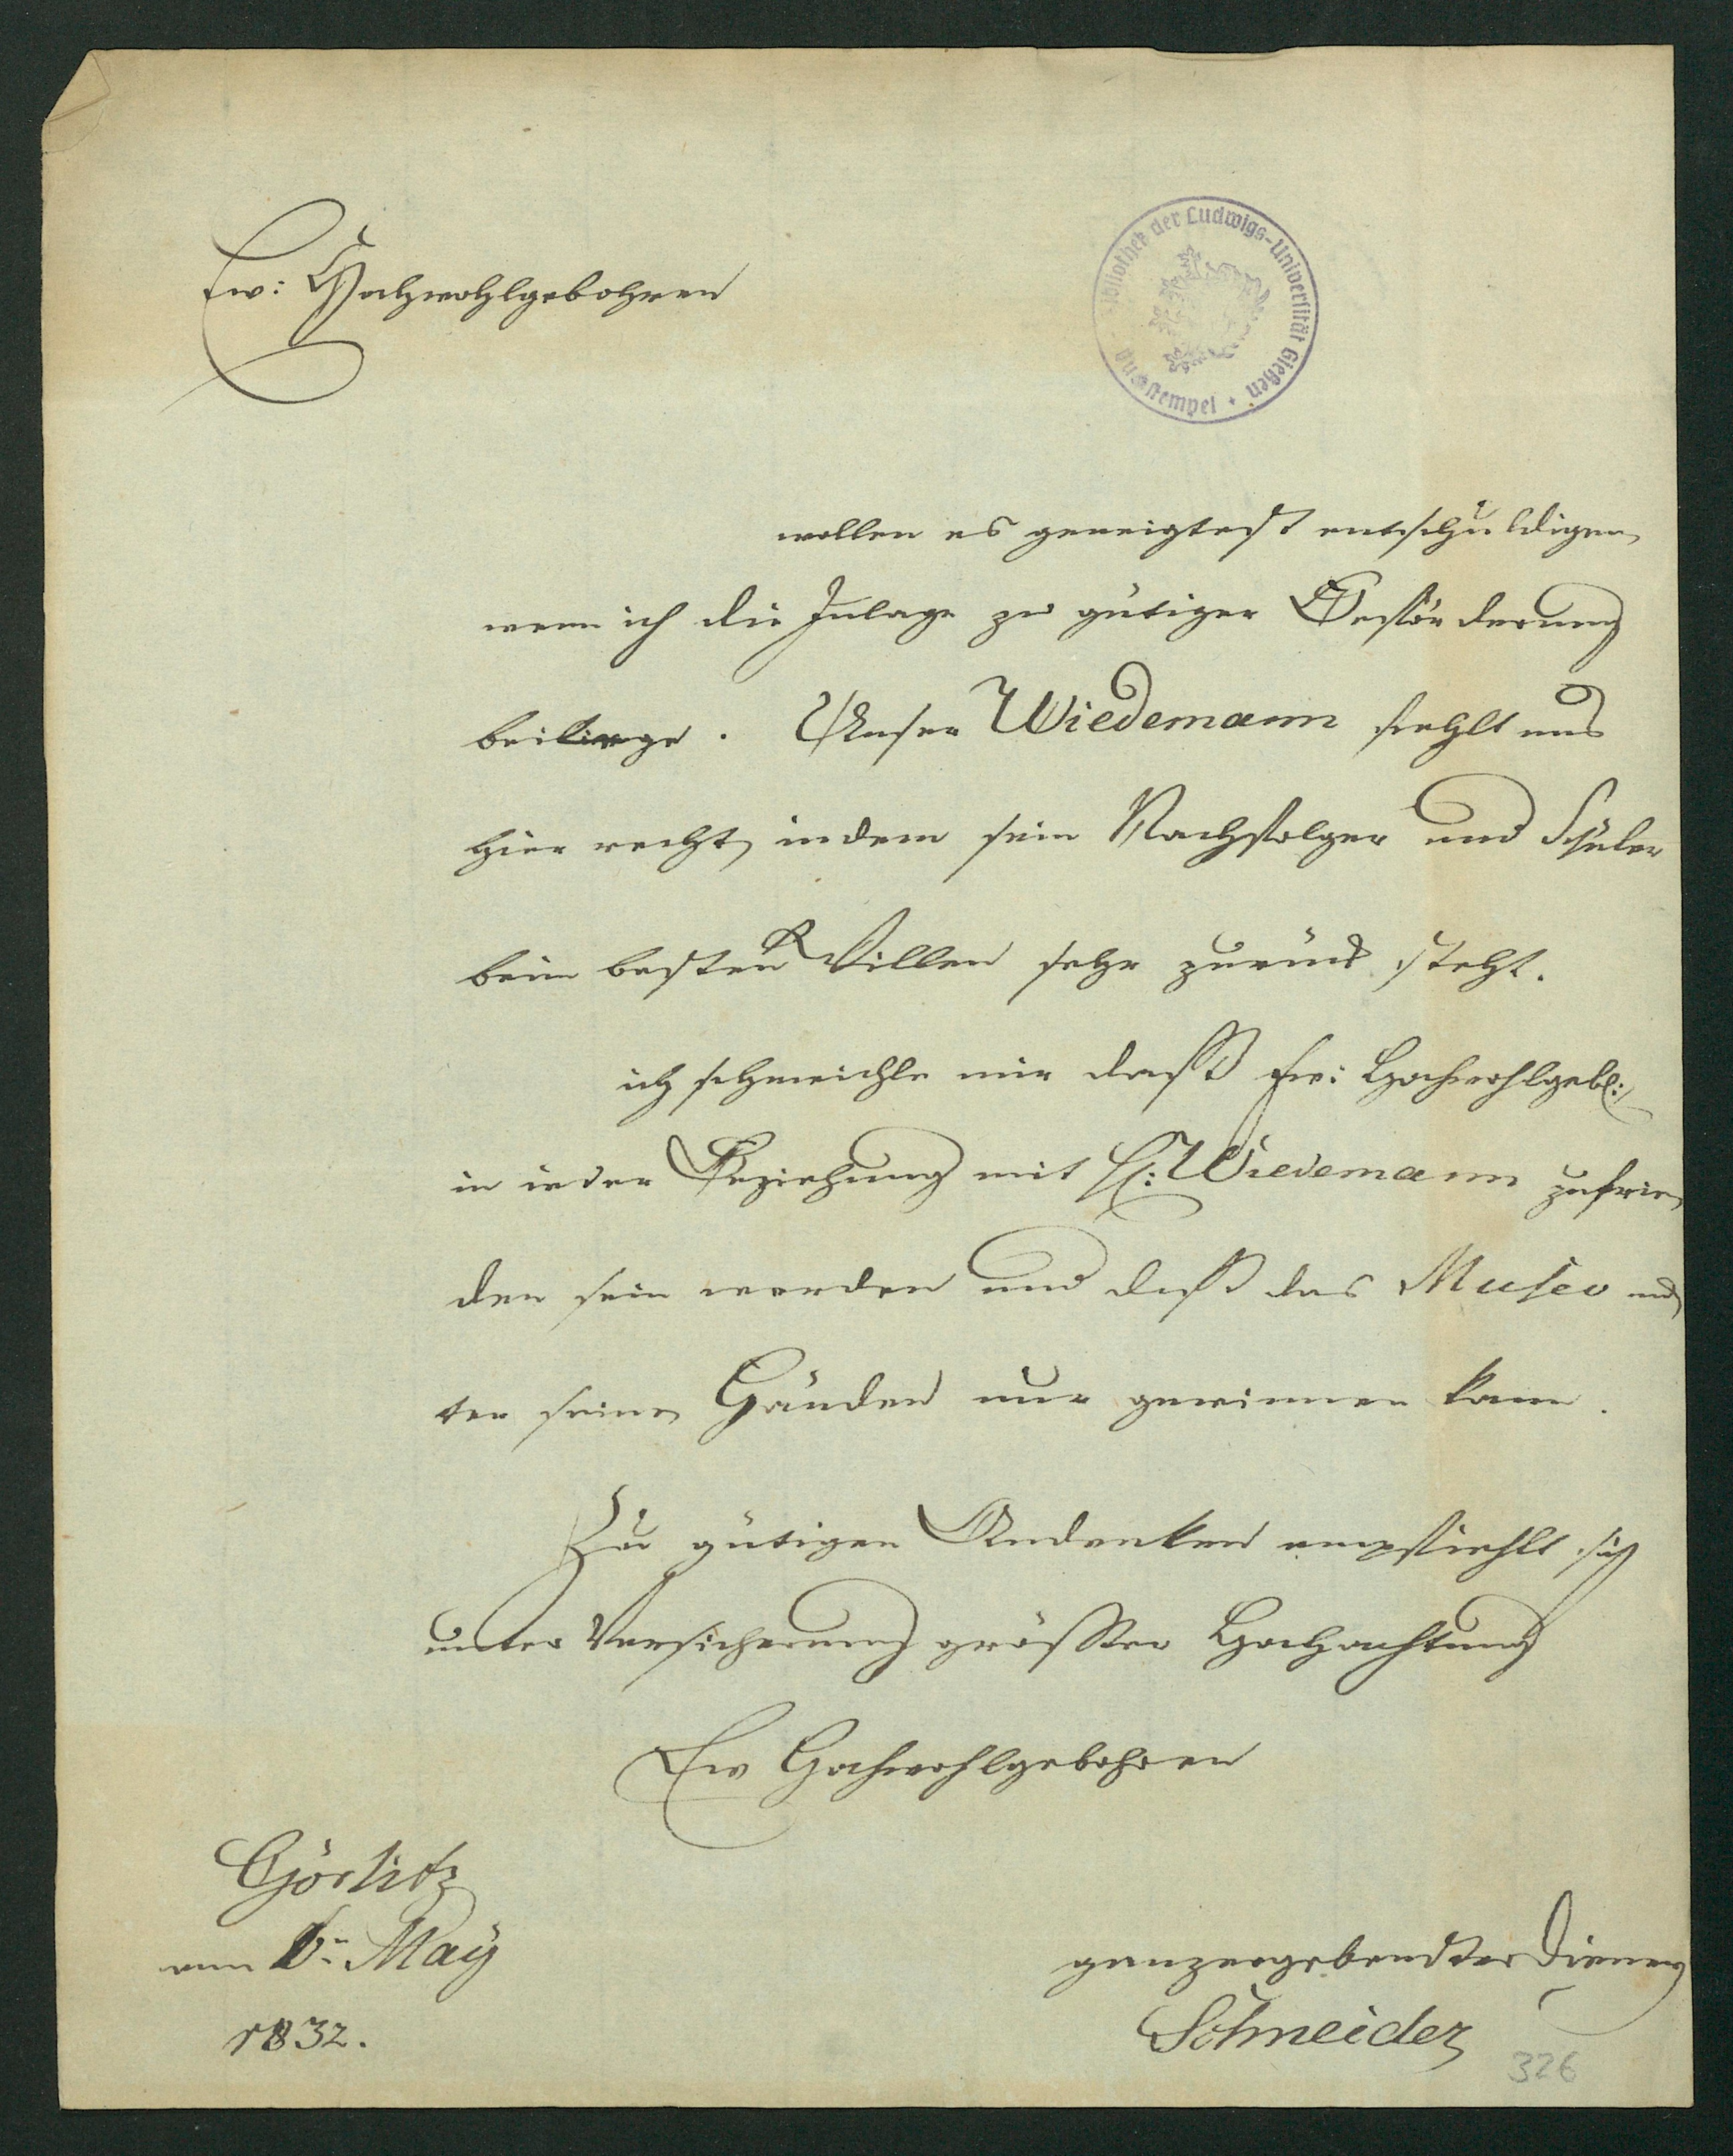 Ew: Hochwohlgebohren
Bibliothek der Ludwigs-Universität Gießen
wollen es geneigtest entschuldigen
wenn ich die Inlage zu gütiger Beförderung
beiliege. Unser Wiedemann fehlt uns
hier recht, indem sein Nachfolger und Schüler
beim besten Willen sehr zurück steht.
ich schmeichle mir dass Ew: Hochwohlgeb:
in ieder Beziehung mit H: Wiedemann zufrie
den sein werden und dass das Museo un
ter seinen Händen nur gewinnen kann.
Zu gütigen Andenken empfiehlt sich
unter Versicherung grösster Hochachtung
Ew Hochwohlgebohren
Görlitz
am 6n May
1832.
ganzergebendster Diener
Schneider
326